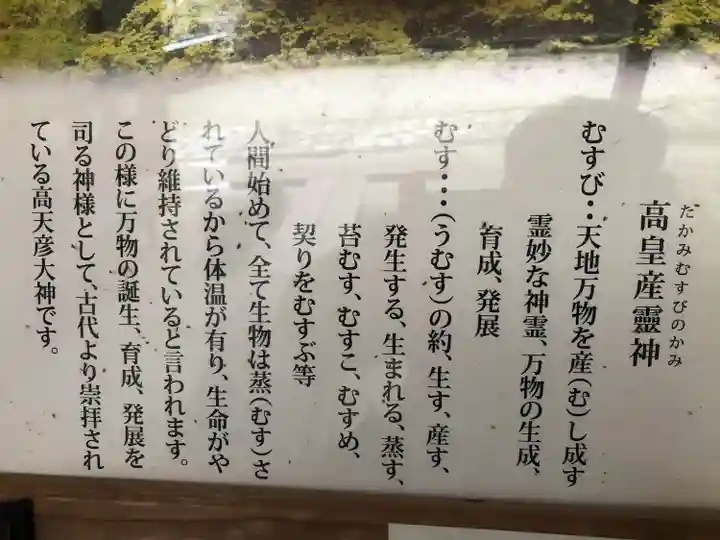 たかみむすびのかみ
高皇産靈神
むすび‥天地万物を産(む)し成す
霊妙な神霊、万物の生成、
育成、発展
むす…(うむす)の約、生す、産す、
発生する、生まれる、蒸す、
苔むす、むすこ、むすめ、
契りをむすぶ等
人間始めて、全て生物は蒸(むす)さ
れているから体温が有り、生命がや
どり維持されていると言われます。
この様に万物の誕生、育成、発展を
司る神様として、古代より崇拝され
ている高天彦大神です。